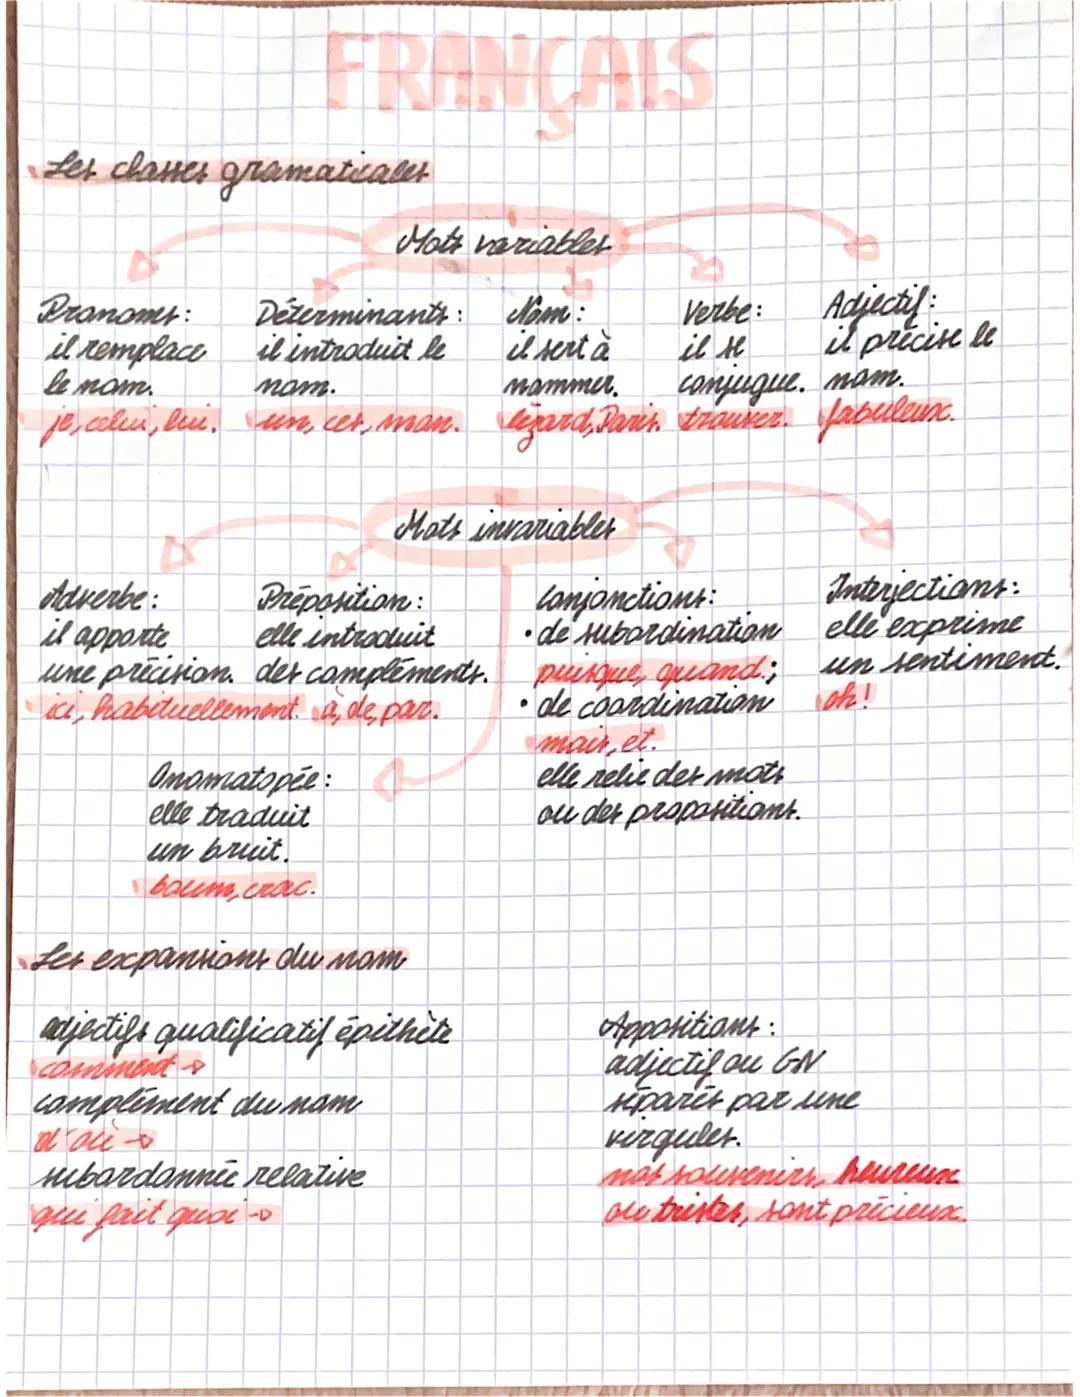 FRANÇAIS
Les classes gramaticales
Mots variables
Pronoms :
il remplace
le nom.
je, celui, lui.
Déterminants :
il introduit le
nom.
un, ces, mon.
Nom :
il sert à
nommer.
lézard, Paris.
Verbe :
il se
conjugue.
trouver.
Adjectif :
il précise le
nom.
fabuleux.
Mots invariables
Adverbe :
il apporte
une précision.
ici, habituellement.
Préposition :
elle introduit
des compléments.
à, de, par.
Conjonctions :
• de subordination
puisque, quand ;
• de coordination
mais, et.
elle relie des mots
ou des propositions.
Interjections :
elle exprime
un sentiment.
oh !
Onomatopée :
elle traduit
un bruit.
boum, crac.
Les expansions du nom
adjectifs qualificatif épithète
comment →
complément du nom
d'où →
subordonnée relative
qui fait quoi →
Appositions :
adjectif ou GN
séparés par une
virgules.
nos souvenirs, heureux
ou tristes, sont précieux.